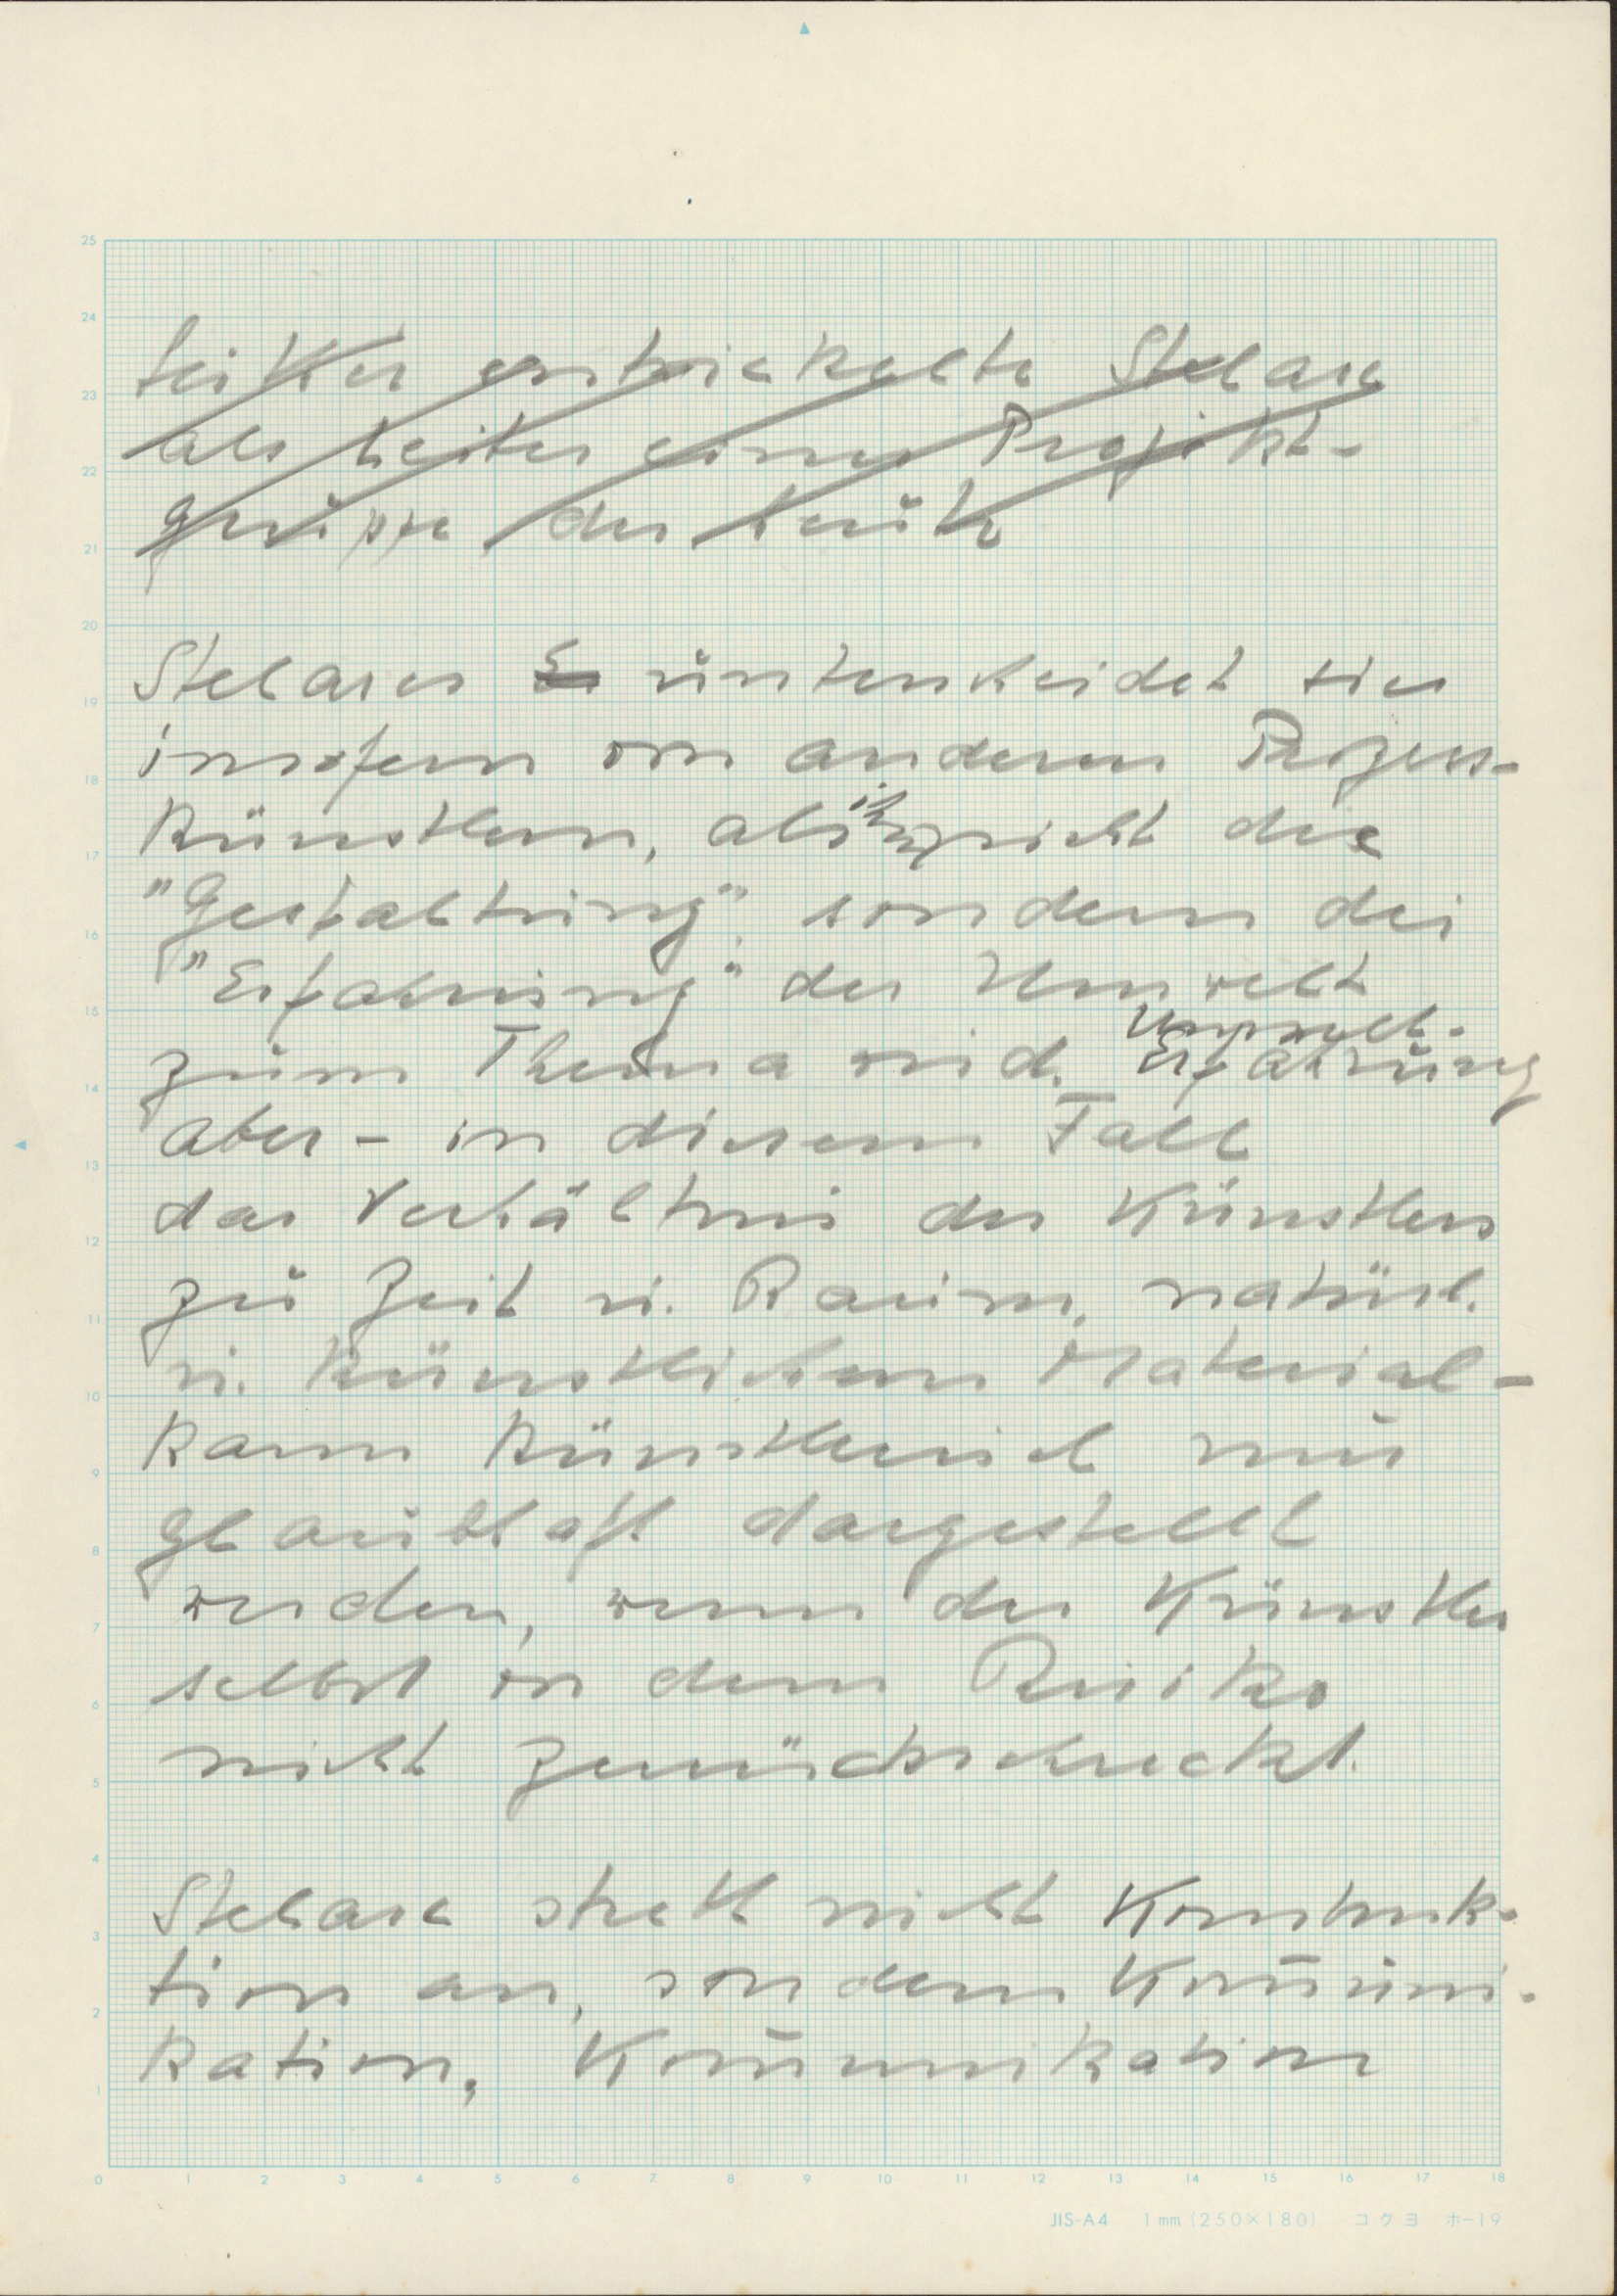 Seither entwickelte Stelarc
als Leiter einer Projekt-
gruppe der Kunst
Stelarc unterscheidet sich
insofern von anderen Prozess-
künstlern, als ihm nicht die
"Gestaltung", sondern die
"Erfahrung" der Umwelt
zum Thema wird. Umwelt-
Erfahrung
aber - in diesem Fall
das Verhältnis des Künstlers
zu Zeit u. Raum, natürl.
u. künstlichem Material -
kann künstlerisch nur
glaubhaft dargestellt
werden, wenn der Künstler
selbst vor dem Risiko
nicht zurückschreckt.
Stelarc strebt nicht Konstruk-
tion an, sondern Kom̄uni-
kation, Kom̄unikation
JIS-A4 1mm (250×180) コクヨ ホ-19
25
24
23
22
21
20
19
18
17
16
15
14
13
12
11
10
9
8
7
6
5
4
3
2
1
0 1 2 3 4 5 6 7 8 9 10 11 12 13 14 15 16 17 18